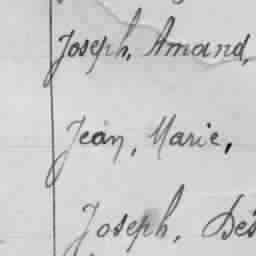 Joseph, Amand,
Jean, Marie,
Joseph, Dés